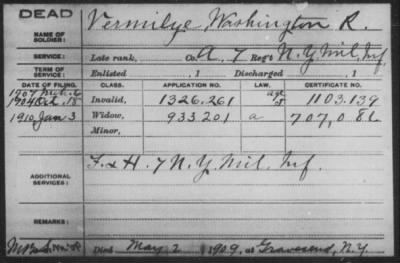 DEAD
NAME OF SOLDIER:
Vermilye Washington R.
SERVICE:
Late rank, Co. A, 7 Reg't N.Y. Mil. Inf.
TERM OF SERVICE
Enlisted , 1 Discharged , 1
DATE OF FILING. CLASS. APPLICATION NO. LAW. CERTIFICATE NO.
1907
1904 Oct. 18 Invalid, 1326.261 1103.139
1910 Jan 3 Widow, 933201 a 707,086
Minor,
ADDITIONAL SERVICES:
F. & H. 7 N.Y. Mil. Inf.
REMARKS:
Died May 2 1909, at Gravesend, N.Y.